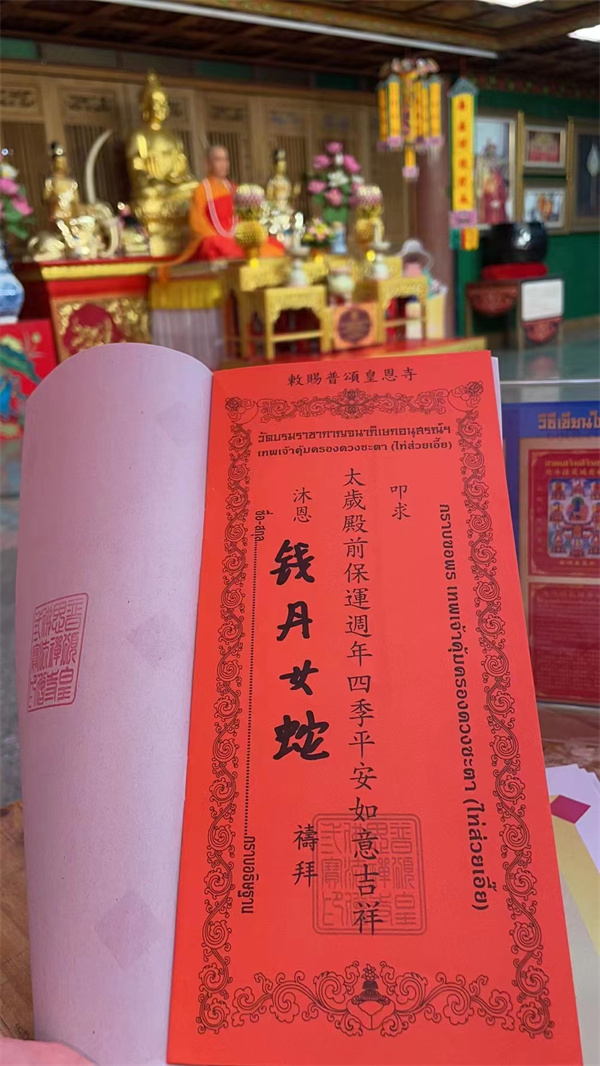 敕賜普頌皇恩寺
วัดบรมราชากาญจนาภิเษกอนุสรณ์ฯ
เทพเจ้าคุ้มครองดวงชะตา (ไท้ส่วยเอี้ย)
กราบขอพร เทพเจ้าคุ้มครองดวงชะตา (ไท้ส่วยเอี้ย)
叩求
太歲殿前保運週年四季平安如意吉祥
沐恩 钱丹女蛇 禱拜
ชื่อ-สกุล กราบอธิษฐาน